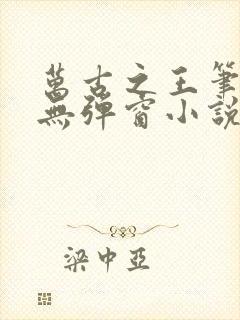 萬古之王筆
無彈窗小說
梁中亞